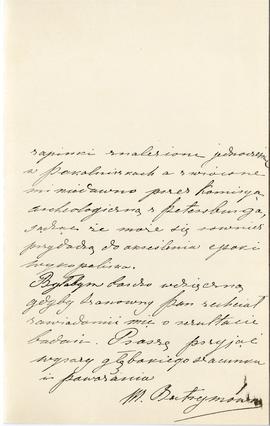 zapinki znalezione jednocześnie
w Pakalniszkach a zwrócone
mi niedawno przez Komisyą
archeologiczną z Petersburga,
sądząc że może się również
przydadzą do określenia epoki
wykopaliska.
Byłabym bardzo wdzięczną
gdyby szanowny pan zechciał
zawiadomić mię o rezultacie
badań. Proszę przyjąć
wyrazy głębokiego szacunku
i poważania
M. Butrymówna